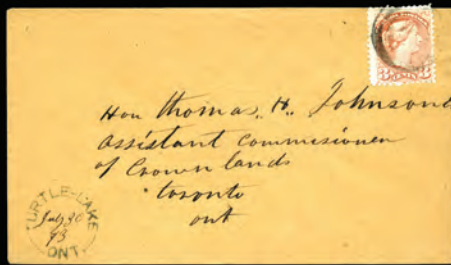 Hon Thomas. H. Johnson
assistant commisioner
of Crown lands
toronto
ont
TURTLE-LAKE
July 30
93
ONT.
3 CENTS 3